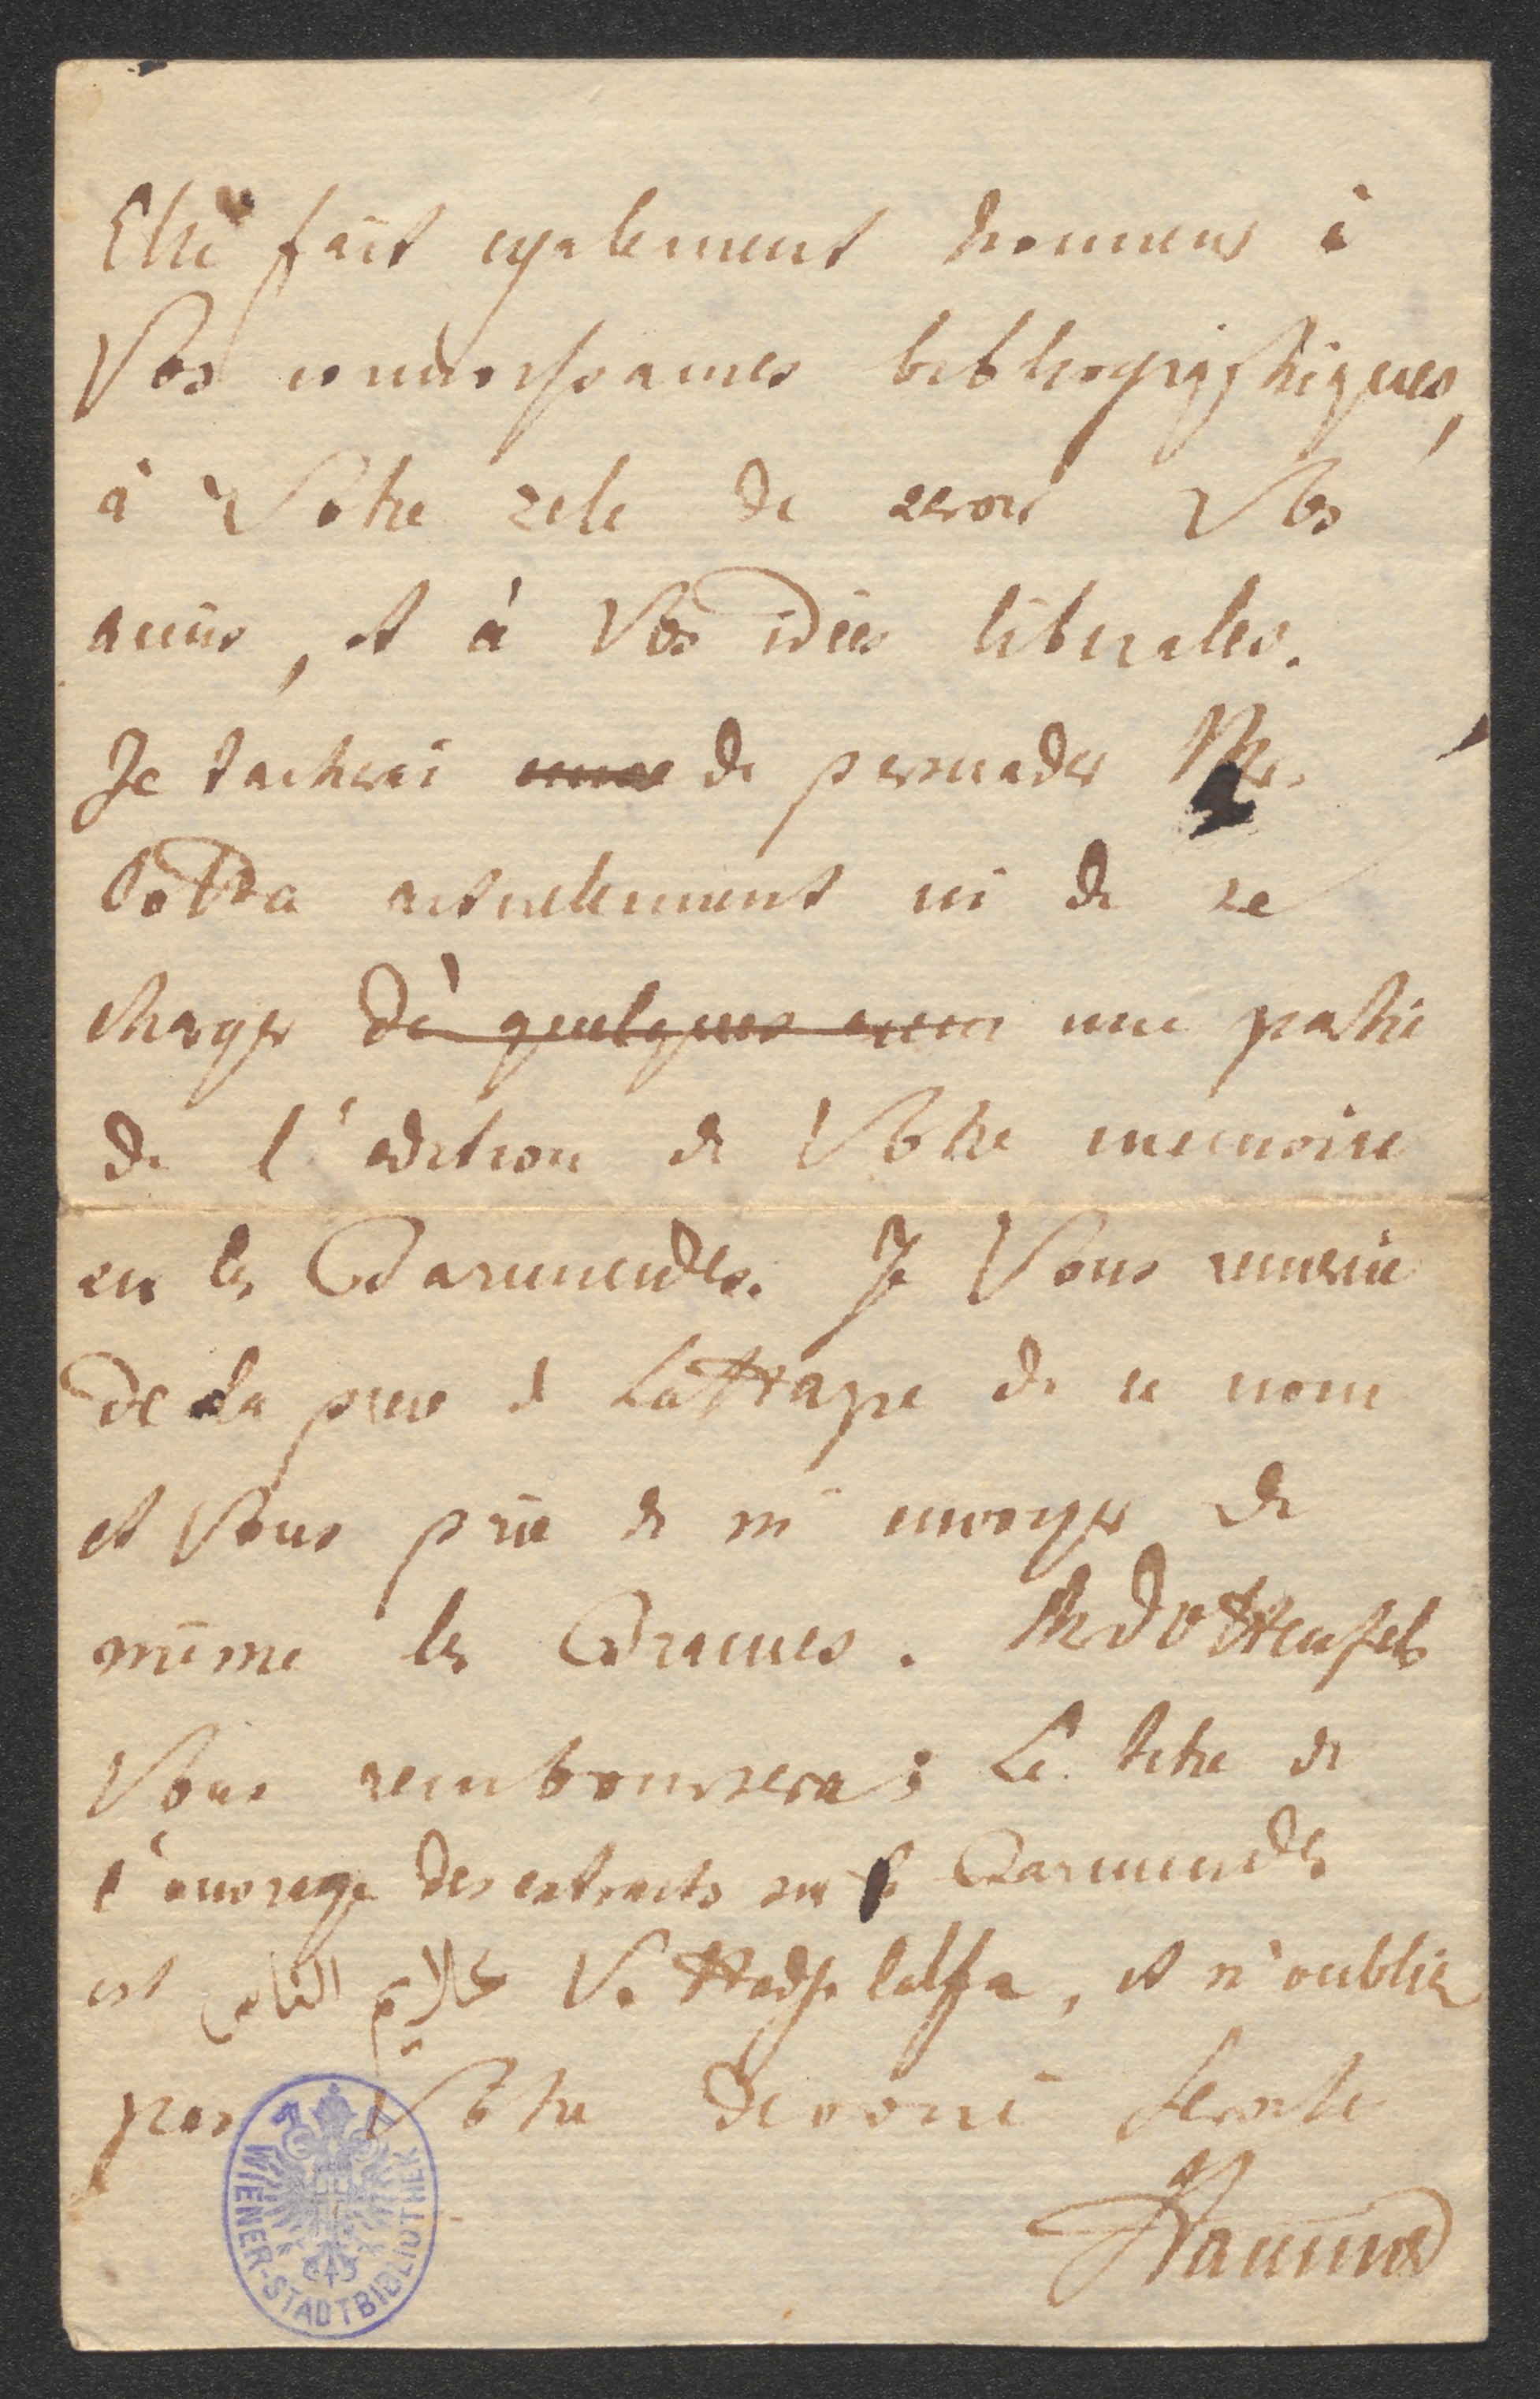 Elle fait egalement honneur à
Vos connoissances bibliographiques,
à Votre zele de servir Vos
amis, et à Vos idées liberales.
Je tacherai de persuader Mr.
Cotta actuellement ici de se
charger de quelques une partie
de l'edition de Votre memoire
sur les Barmecides. Je Vous remercie
de la pour d Lattrape de ce nom
et Vous prie de m'envoyer de
même les Drames. Mr d'Ottenfels
Vous remboursera; Le titre de
l'ouvrage des extraits sur Barmecides
est علام الناس V. Hadji Calfa, et n'oubliez
pas Votre devoué Servite
Hammer
WIENER-STADTBIBLIOTHEK